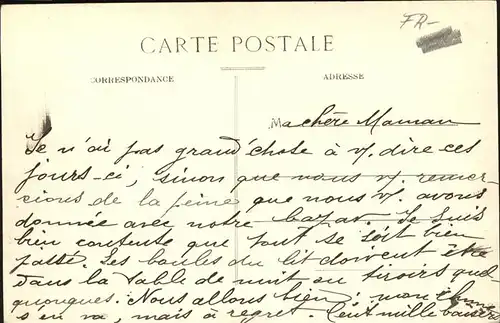 FR-
CARTE POSTALE
CORRESPONDANCE
ADRESSE
Ma chère Maman
Je n'ai pas grand'chose à v. dire ces
jours-ci; sinon que nous v. remer-
cions de la peine que nous v. avons
donnée avec notre bazar. Je suis
bien contente que tout se soit bien
passé. Les boules du lit doivent être
dans la table de nuit ou tiroirs quel-
quongues. Nous allons bien; mon
s'en va, mais à regret. Cent mille baisers